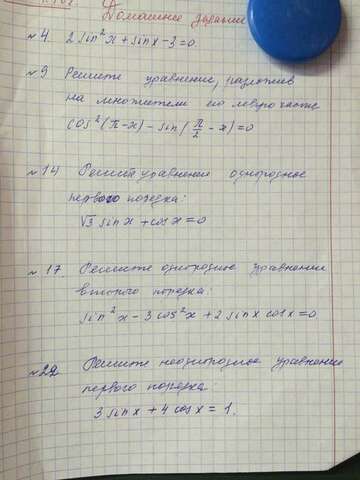 Домашнее задание
№4. 2 sin²x + sin x - 3 = 0
№9 Решите уравнение, разложив
на множители его левую часть
cos²(π-x) - sin(π/2 - x) = 0
№14 Решите уравнение однородное
первого порядка:
√3 sin x + cos x = 0
№17. Решите однородное уравнение
второго порядка:
sin²x - 3 cos²x + 2 sin x cos x = 0
№22 Решите неоднородное уравнение
первого порядка:
3 sin x + 4 cos x = 1.